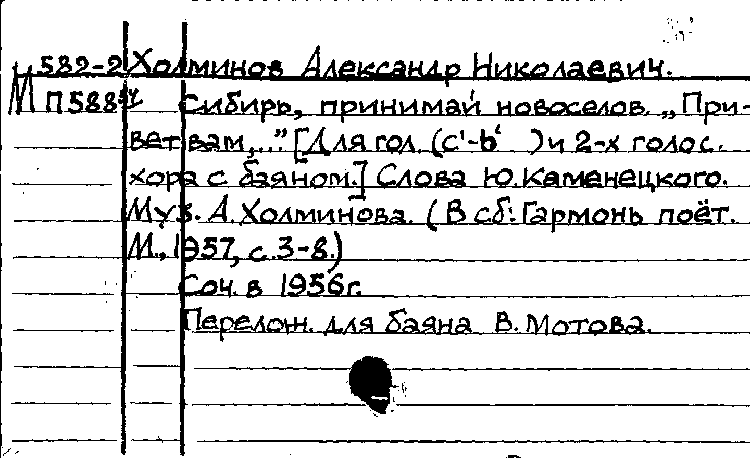 589-2 Холминов Александр Николаевич.
М П588 Сибирь, принимай новоселов. „При-
вет вам,..." [Для гол. (c'-b' ) и 2-х голос.
хора с баяном.] Слова Ю. Каменецкого.
Муз. А. Холминова. (В сб.: Гармонь поёт.
М., 1957, с. 3-8.)
Соч. в 1956г.
Перелож. для баяна В. Мотова.